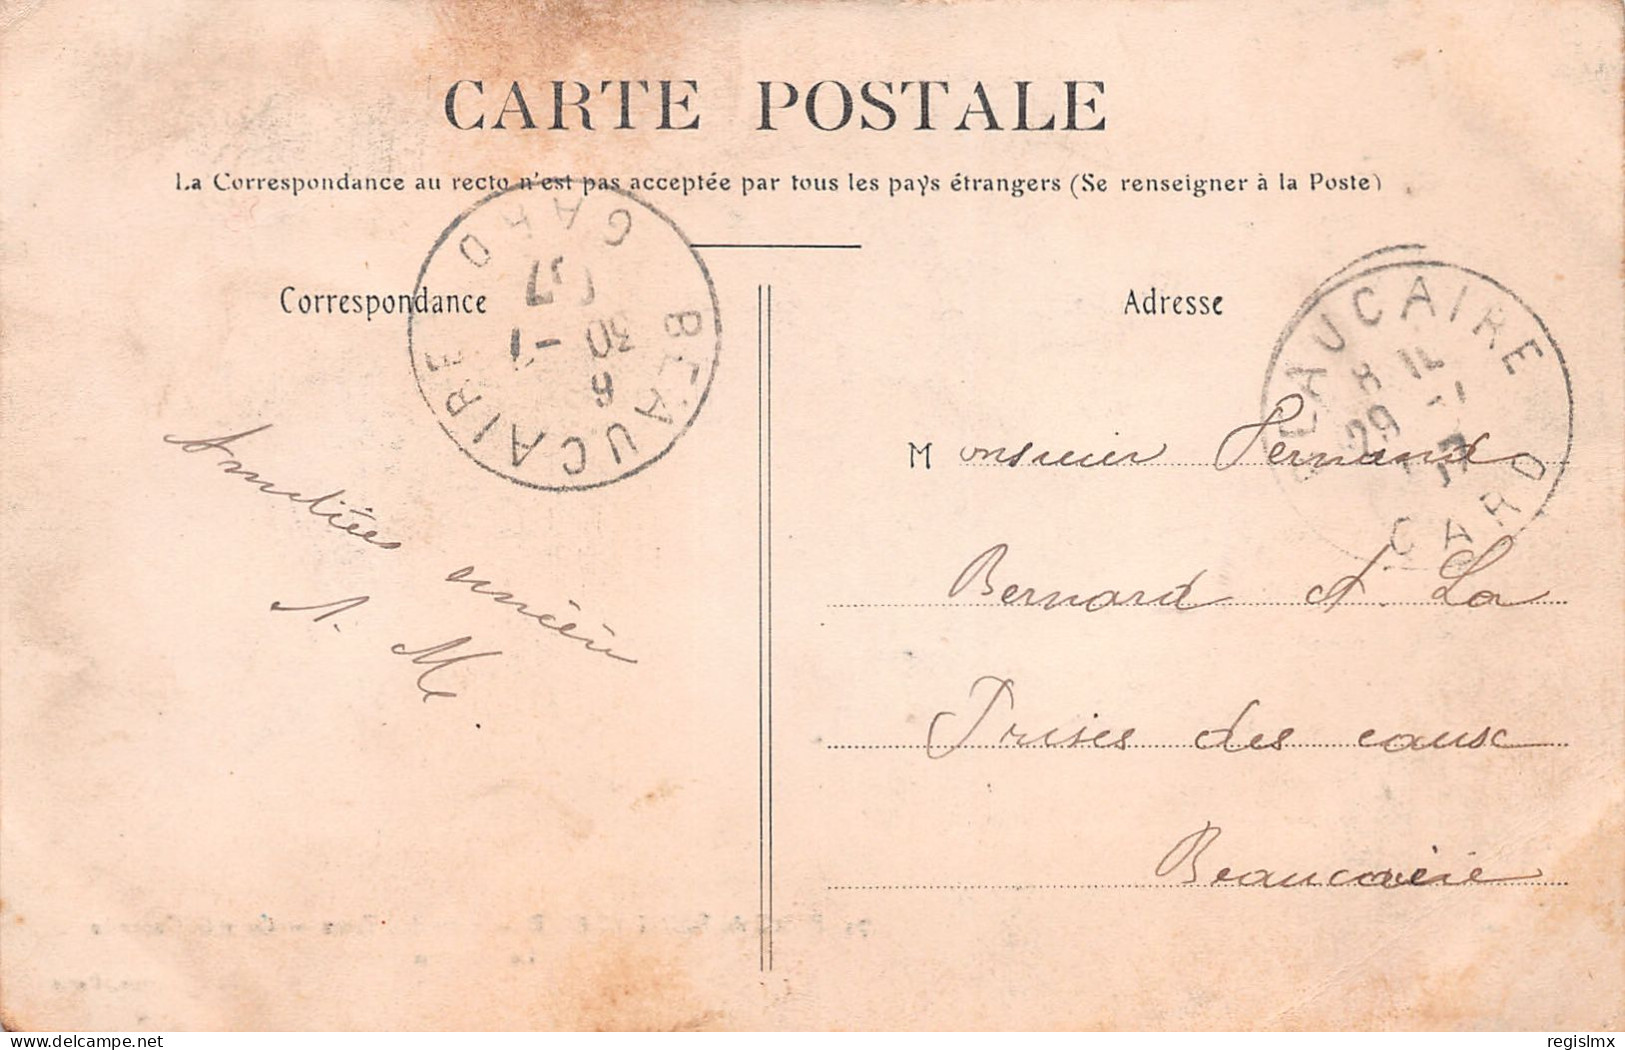 CARTE POSTALE
La Correspondance au recto n'est pas acceptée par tous les pays étrangers (Se renseigner à la Poste)
Correspondance
Adresse
BEAUCAIRE
GARD
6
30 -1
07
BEAUCAIRE
8
29 -1
GARD
Amitiées
A. M.
Monsieur Fernand
Bernard A. La
Prises des eaux
Beaucaire
regislmx
delcampe.net